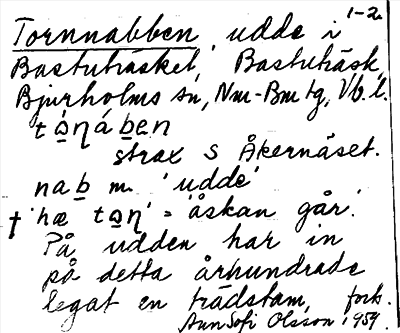 1-2.
Tornnabben, udde i
Bastuträsket, Bastuträsk,
Bjurholms sn, Nm-Bm tg, Vb. l.
tɑ̀ŋáben
strax S Åkernäset.
nab m. 'udde'
† 'hæ tɑŋ' = 'åskan går'.
På udden har in
på detta århundrade
legat en trädstam, fork.
Ann Sofi Olsson 1959.